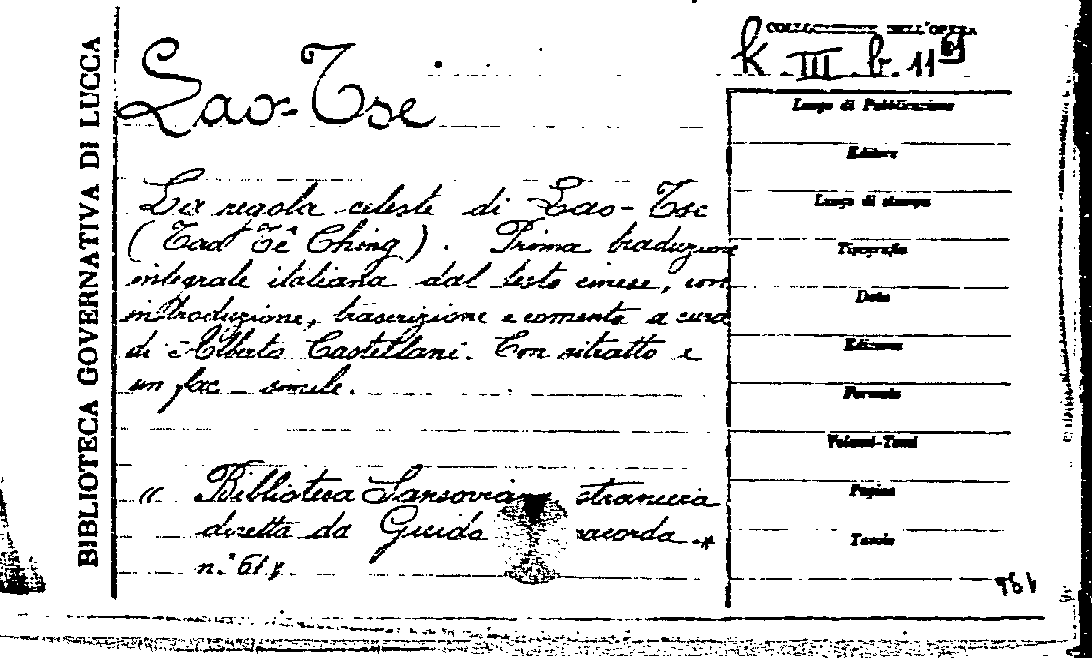 BIBLIOTECA GOVERNATIVA DI LUCCA
COLLOCAZIONE DELL'OPERA
K. III. b. 11
Lao-Tse
La regola celeste di Lao-Tse
(Tao Tê Ching). Prima traduzione
integrale italiana dal testo cinese, con
introduzione, trascrizione e comento a cura
di Alberto Castellani. Con ritratto e
un fac-simile.
« Biblioteca Sansoviana straniera
diretta da Guido
n.°
Luogo di Pubblicazione
Editore
Luogo di stampa
Tipografia
Data
Edizione
Formato
Volumi-Tomi
Pagine
Tavole